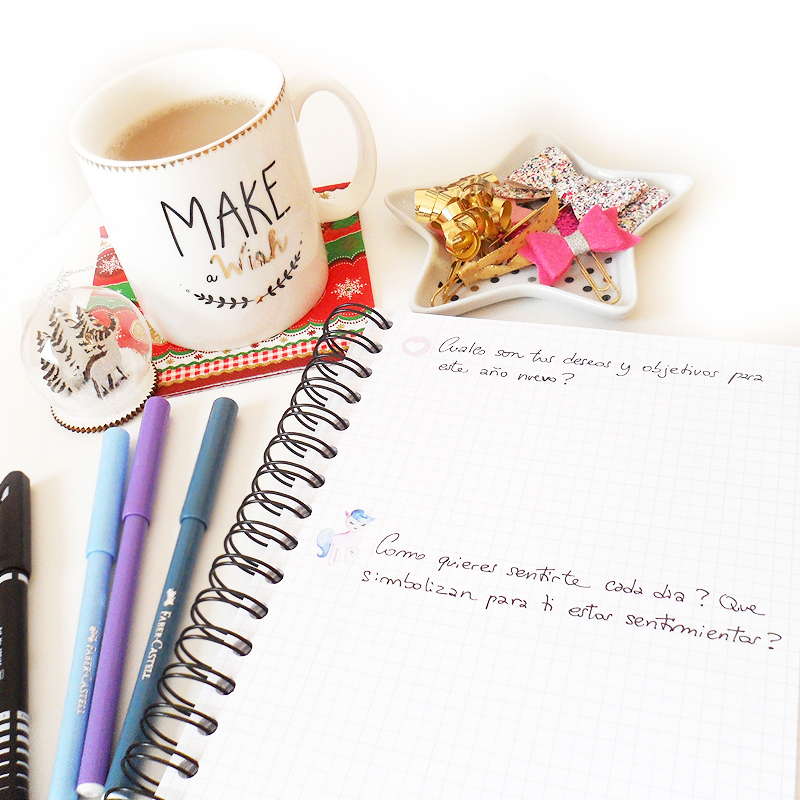 MAKE
a Wish
Cuales son tus deseos y objetivos para
este año nuevo?
Como quieres sentirte cada dia? Que
simbolizan para ti estos sentimientos?
FABER-CASTELL
FABER-CASTELL